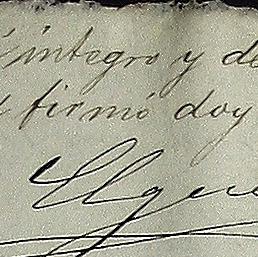 íntegro y de
firmó doy